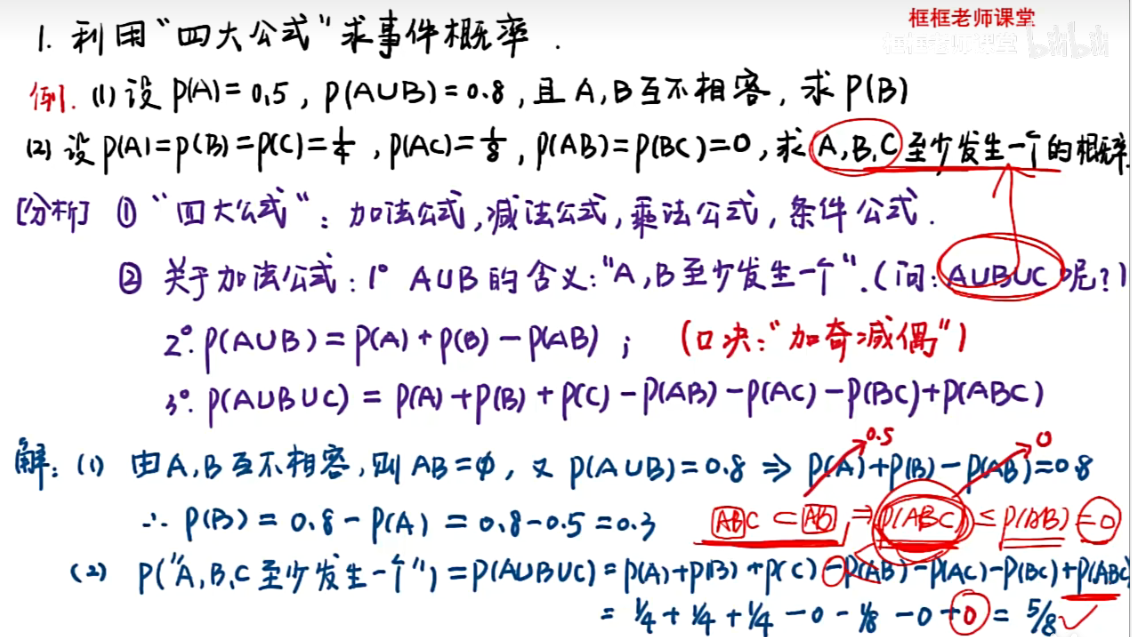 框框老师课堂
框框老师课堂 bilibili
1. 利用"四大公式"求事件概率.
例. (1) 设 P(A)=0.5, P(A∪B)=0.8, 且 A,B 互不相容, 求 P(B)
(2) 设 P(A)=P(B)=P(C)=1/4, P(AC)=1/8, P(AB)=P(BC)=0, 求 A,B,C 至少发生一个的概率.
[分析] ① "四大公式": 加法公式, 减法公式, 乘法公式, 条件公式.
② 关于加法公式: 1° A∪B 的含义: "A,B 至少发生一个". (问: A∪B∪C 呢?)
2°. P(A∪B) = P(A) + P(B) − P(AB) ; (口决: "加奇减偶")
3°. P(A∪B∪C) = P(A) + P(B) + P(C) − P(AB) − P(AC) − P(BC) + P(ABC)
0.5 0
解: (1) 由 A,B 互不相容, 则 AB=φ, 又 P(A∪B)=0.8 ⇒ P(A)+P(B)−P(AB)=0.8
∴ P(B) = 0.8 − P(A) = 0.8−0.5 = 0.3 ABC ⊂ AB, ⇒ P(ABC) ≤ P(AB) = 0
(2) P("A,B,C 至少发生一个") = P(A∪B∪C) = P(A)+P(B)+P(C) − P(AB) − P(AC) − P(BC) + P(ABC)
= 1/4 + 1/4 + 1/4 − 0 − 1/8 − 0 + 0 = 5/8 ✓